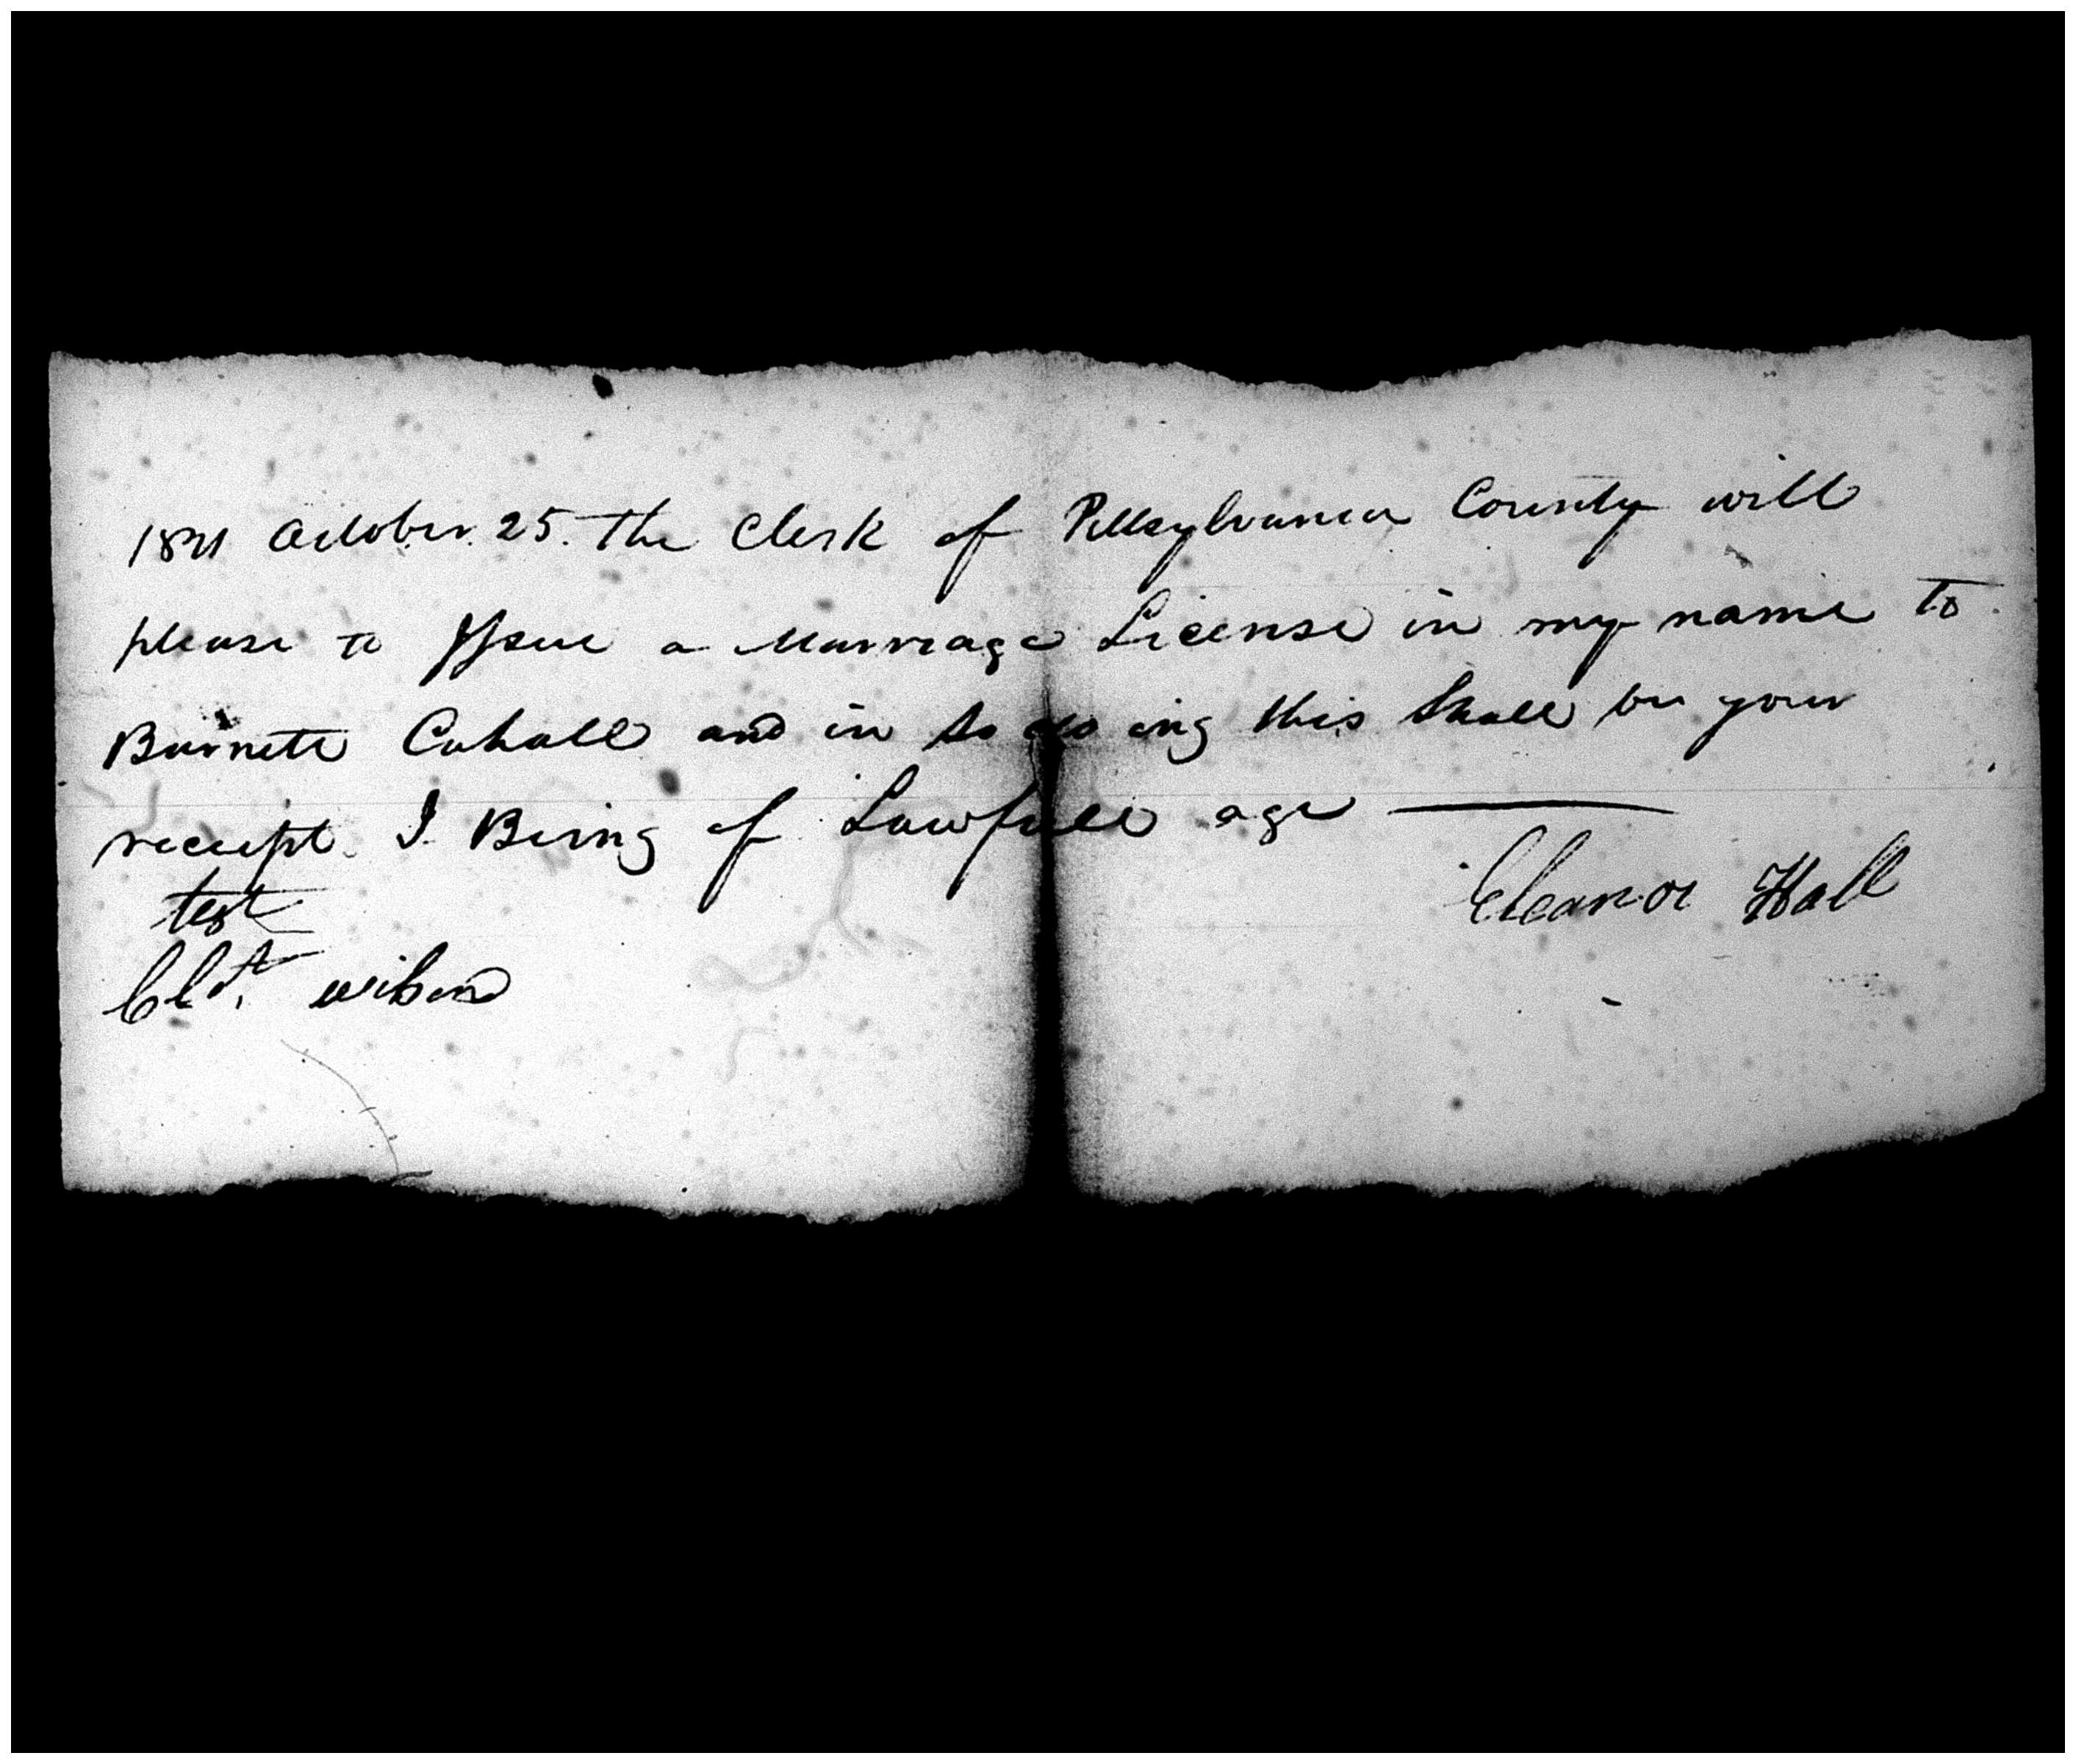 October 25. The Clerk of Pittsylvania County will
please to Issue a Marriage License in my name to
Burnett Cahall and in so do ing this Shall be your
receipt. I Being of Lawfull age ———
Eleanor Hall
test
wilson